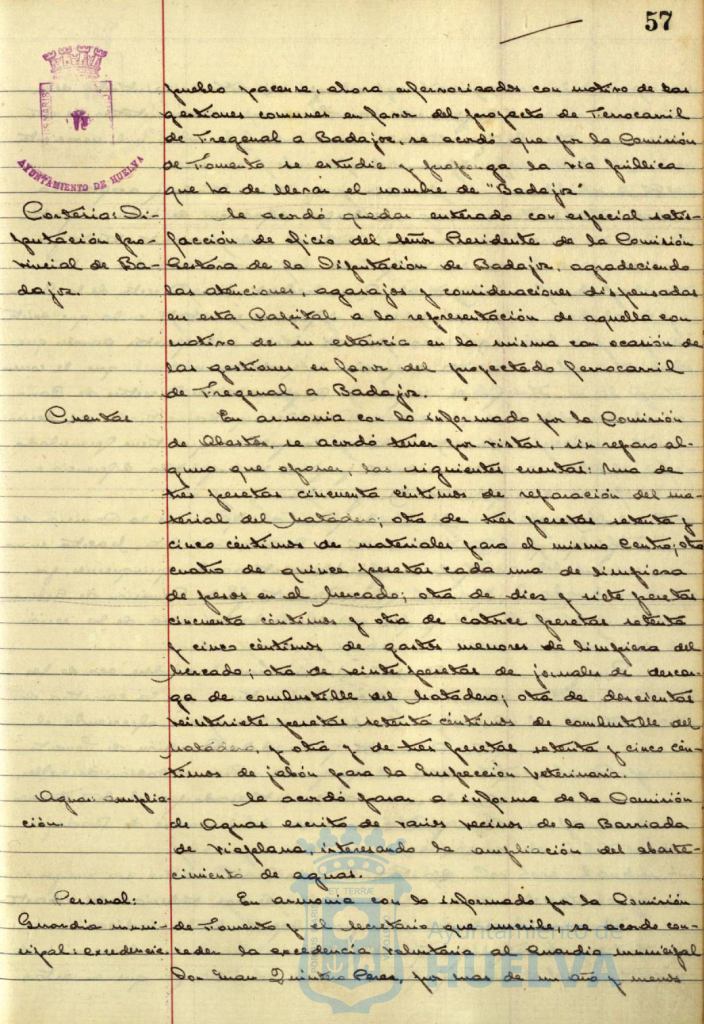 57
AYUNTAMIENTO DE HUELVA
pueblo pacense, ahora enfervorizados con motivo de las
gestiones comunes en favor del proyecto de Ferrocarril
de Fregenal a Badajoz, se acordó que por la Comisión
de Fomento se estudie y proponga la vía pública
que ha de llevar el nombre de "Badajoz"
Cortesia: Di-
putación pro-
vincial de Ba-
dajoz.
Se acordó quedar enterado con especial satis-
facción de oficio del Señor Presidente de la Comisión
Gestora de la Diputación de Badajoz, agradeciendo
las atenciones, agasajos y consideraciones dispensadas
en esta Capital a la representación de aquella con
motivo de su estancia en la misma con ocasión de
las gestiones en favor del proyectado ferrocarril
de Fregenal a Badajoz.
Cuentas
En armonia con lo informado por la Comisión
de Abastos, se acordó tener por vistas, sin reparo al-
guno que oponer, las siguientes cuentas: Una de
tres pesetas cincuenta céntimos de reparación del ma-
terial del Matadero; otra de tres pesetas setenta y
cinco céntimos de materiales para el mismo Centro; otras
cuatro de quince pesetas cada una de limpieza
de pesos en el Mercado; otra de diez y siete pesetas
cincuenta céntimos y otra de catorce pesetas setenta
y cinco céntimos de gastos menores de limpieza del
Mercado; otra de veinte pesetas de jornales de descar-
ga de combustible del Matadero; otra de doscientas
veintisiete pesetas setenta céntimos de combustible del
Matadero, y otra y de tres pesetas setenta y cinco cén-
timos de jabón para la Inspección Veterinaria.
Aguas: amplia-
ción.
Se acordó pasar a informe de la Comisión
de Aguas escrito de varios vecinos de la Barriada
de Viaplana, interesando la ampliación del abaste-
cimiento de aguas.
Personal:
Guardia muni-
cipal: excedencia.
En armonia con lo informado por la Comisión
de Fomento y el Secretario que suscribe, se acordó con-
ceder la excedencia voluntaria al Guardia municipal
Don Juan Quintero Perez, por mas de un año y menos
Ayuntamiento de
HUELVA